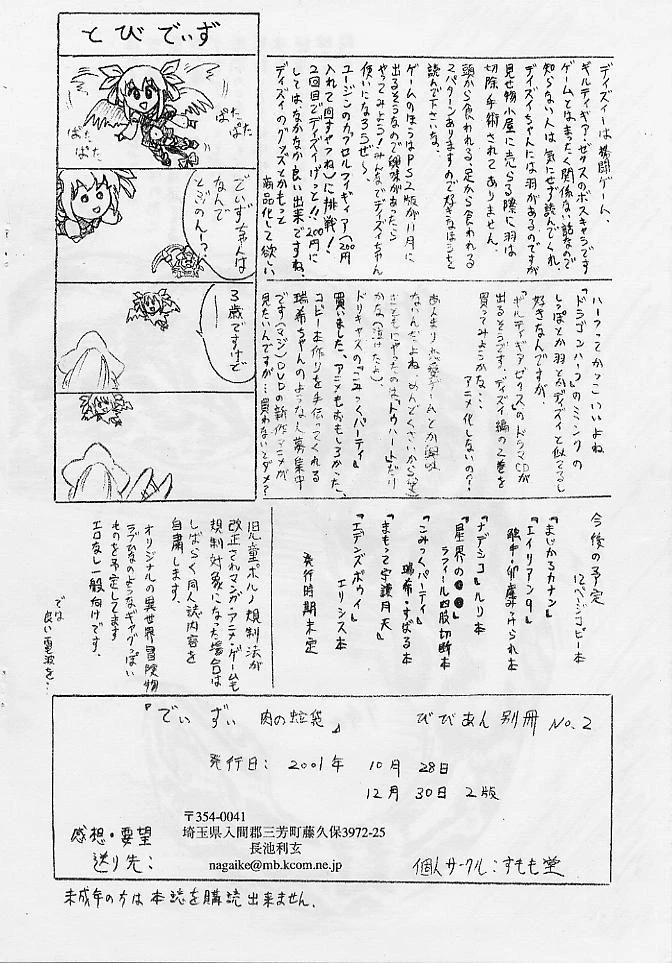 とびでぃず
ぱた ぱた
ぱた ぱた
でぃずちゃんは
なんで
とぶのんしっ?
3歳ですけど
ディズィーは格闘ゲーム、
ギルティギア・ゼクスのボスキャラです
ゲームとはまったく関係ない話なので
知らない人は気にせず読んでくれ。
ディズィちゃんには羽があるのですが
見せ物小屋に売らる際に羽は
切除手術されてありません。
頭から食われると、足から食われる
2パターンありますので好きなほうを
読んで下さいな。
ゲームのほうはPS2版が11月に
出るそうなので興味があったら
やってみよう!みんなでディズィちゃん
使いになろうぜ〜
ユージンのカプセルフィギュア(200円
入れて回すやつね)に挑戦!
2回目でディズィげっと!!200円に
してはなかなか良い出来ですね。
ディズィのグッズとかもっと
商品化して欲しい。
ハーフってかっこいいよね
『ドラゴンハーフ』のミンクの
しっぽとか羽とかディズィと似てるし
好きなんですが、
『ギルティギアゼクス』のドラマCDが
出るそうです。ディズィ編の2巻を
買ってみようかな・・・
アニメ化しないの??
あんまり恋愛ゲームとか興味
ないんだよね。めんどくさいから(笑)
まともにやったのはトゥハートだけ
かな(泣けたよ)
ドリキャスの『こみっくパーティ』
買いました、アニメもおもしろかった。
コピー本作りを手伝ってくれる
瑞希ちゃんのような人募集中
です(マジ)DVDの新作アニメが
見たいんですが…買わないとダメ?
今後の予定
12ページコピー本
『まじかるカナン』
『エイリアン9』
触手・卵産みつけられ本
『ナデシコ』ルリ本
『星界の●●』
ラフィール四肢切断本
『こみっくパーティ』
瑞希・すばる本
『まもって守護月天』
『エデンズボゥイ』
エリシス本
発行時期未定
児童ポルノ規制法が
改正されマンガ・アニメ・ゲームも
規制対象になった場合は
しばらく同人誌内容を
自粛します。
オリジナルの異世界冒険物
ラブひなのようなギャグっぽい
ものを予定してます
エロなし一般向けです。
では
良い電波を…
『でぃずぃ 肉の 袋』 びびあん別冊 No.2
発行日: 2001年 10月 28日
12月 30日 2版
〒354-0041
埼玉県入間郡三芳町藤久保3972-25
長池利玄
nagaike@mb.kcom.ne.jp
感想・要望
送り先:
個人サークル:すもも堂
未成年の方は本誌を購読出来ません.